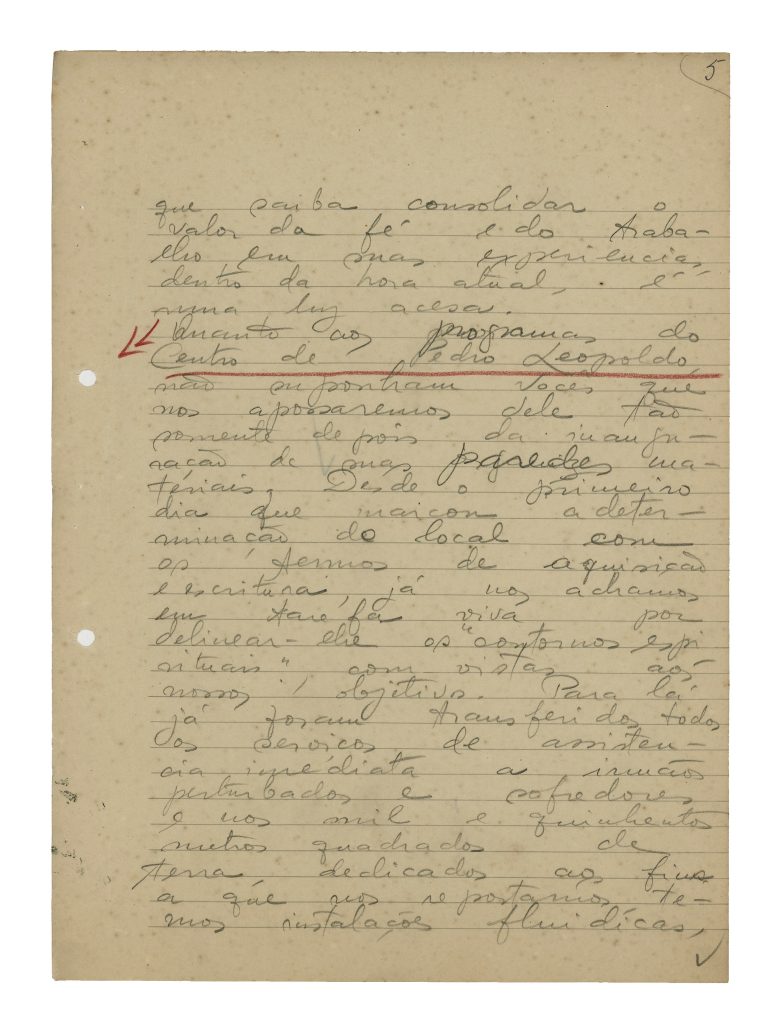 5
que saiba consolidar o
valor da fé e do traba-
lho, em suas experiencias,
dentro da hora atual, é
uma luz acesa.
Quanto aos programas do
Centro de Pedro Leopoldo,
não suponham vocês que
nos apossaremos dele tão
somente depois da inaugu-
ração de suas paredes ma-
teriais. Desde o primeiro
dia que marcou a deter-
minação do local com
os termos de aquisição
e escritura, já nos achamos
em tarefa viva por
delinear-lhe os "contornos espi
rituais" com vistas aos
nossos objetivos. Para lá
já foram transferidos todos
os serviços de assisten-
cia imediata a irmãos
perturbados e sofredores
e nos mil e quinhentos
metros quadrados de
terra dedicados aos fins
a que nos reportamos, te-
mos instalações fluidicas,